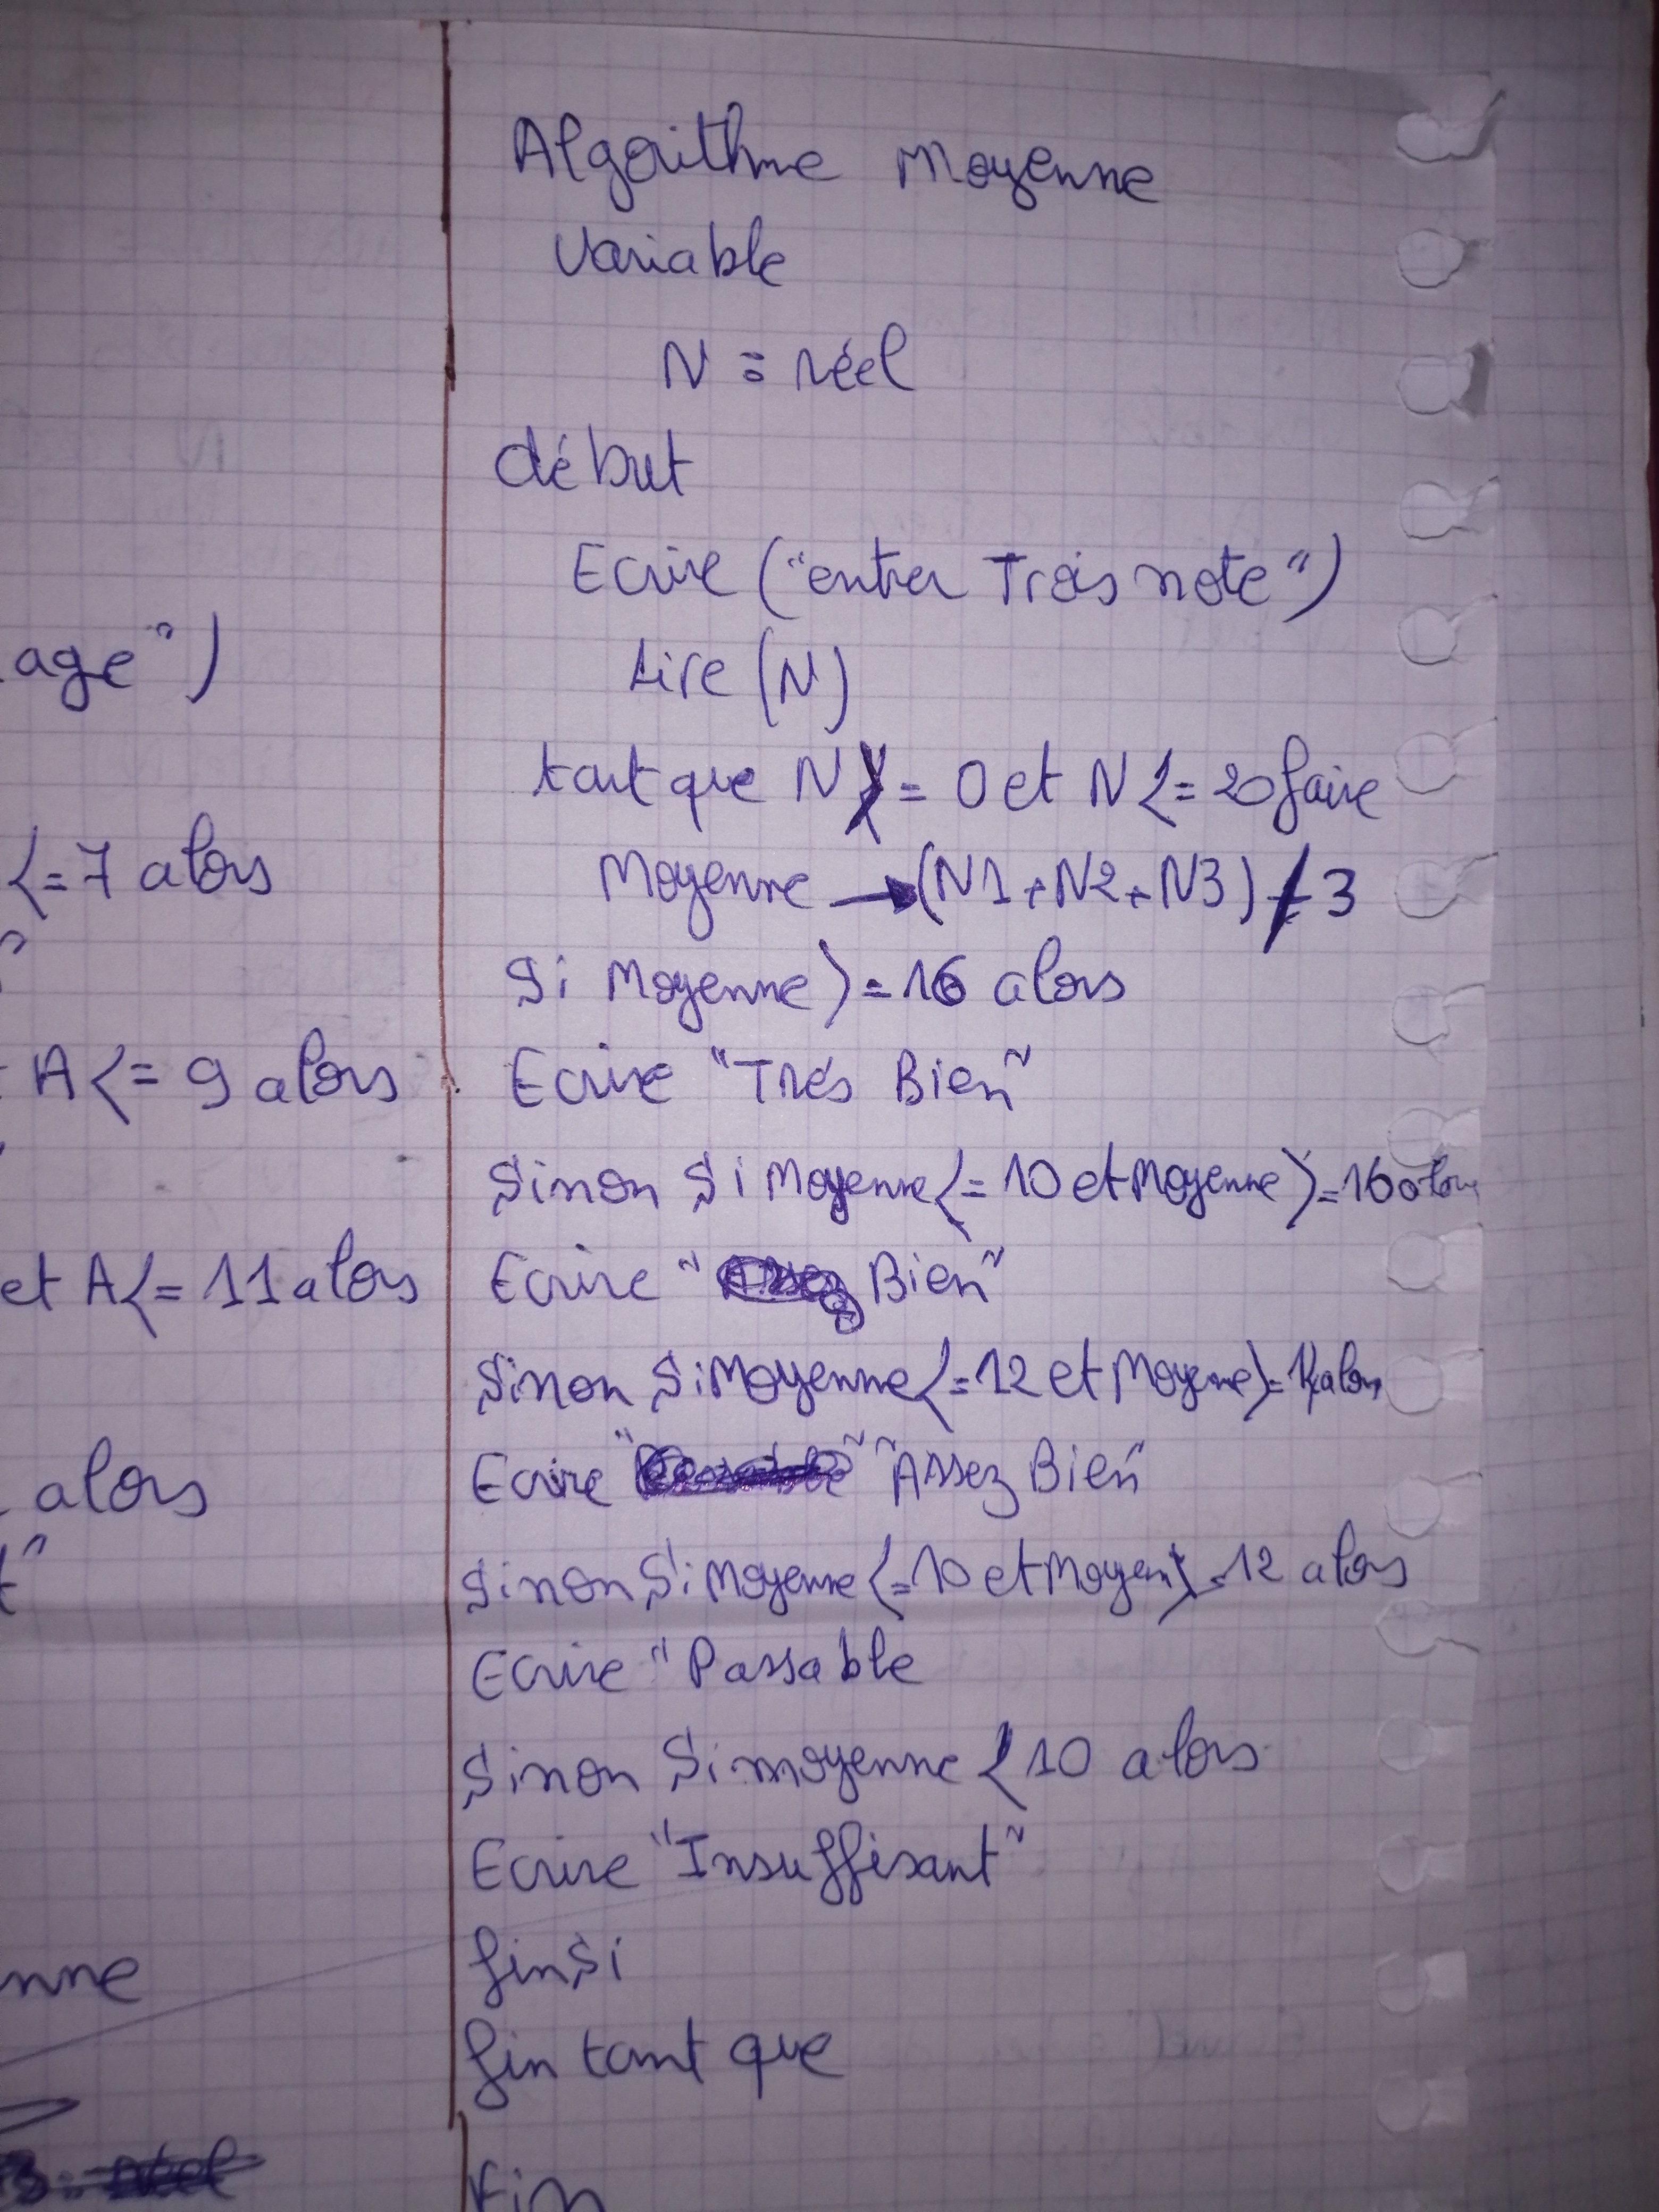 age")
<=7 alors
A <= 9 alors
et A <= 11 alors
alors
nne
Algorithme Moyenne
Variable
N : réel
début
Ecrire ("entrer Trois note")
Lire (N)
tant que N >= 0 et N <= 20 faire
Moyenne → (N1 + N2 + N3) / 3
Si Moyenne >= 16 alors
Ecrire "Trés Bien"
Sinon Si Moyenne <= 10 et Moyenne >= 16 alors
Ecrire " Bien"
Sinon Si Moyenne <= 12 et Moyenne >= 14 alors
Ecrire " " "Assez Bien"
Sinon Si Moyenne <= 10 et Moyen >= 12 alors
Ecrire "Passable
Sinon Si moyenne < 10 alors
Ecrire "Insuffisant"
finSi
fin tant que
Fin